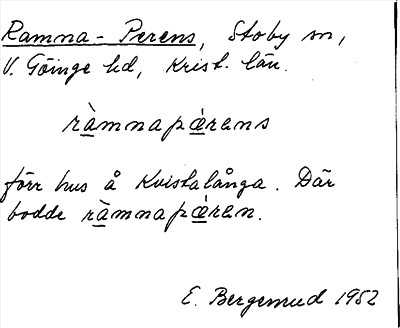 Ramna - Perens, Stoby sn,
V. Göinge hd, Krist. län.
ràmnapǽrens
förr hus å Kvistalånga. Där
bodde ràmnapǽren.
E. Bergemud 1952